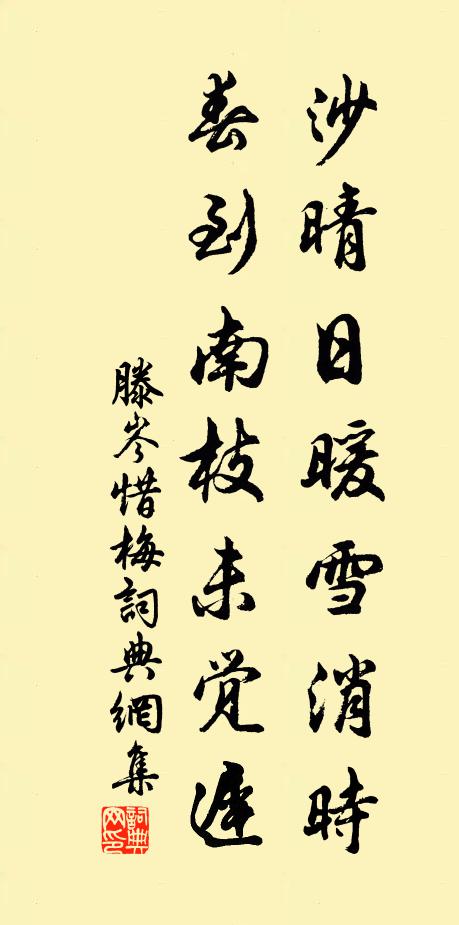 沙晴日暖雪消時
春到南枝未覺遲
滕岑惜梅詞典網集
詞典網印